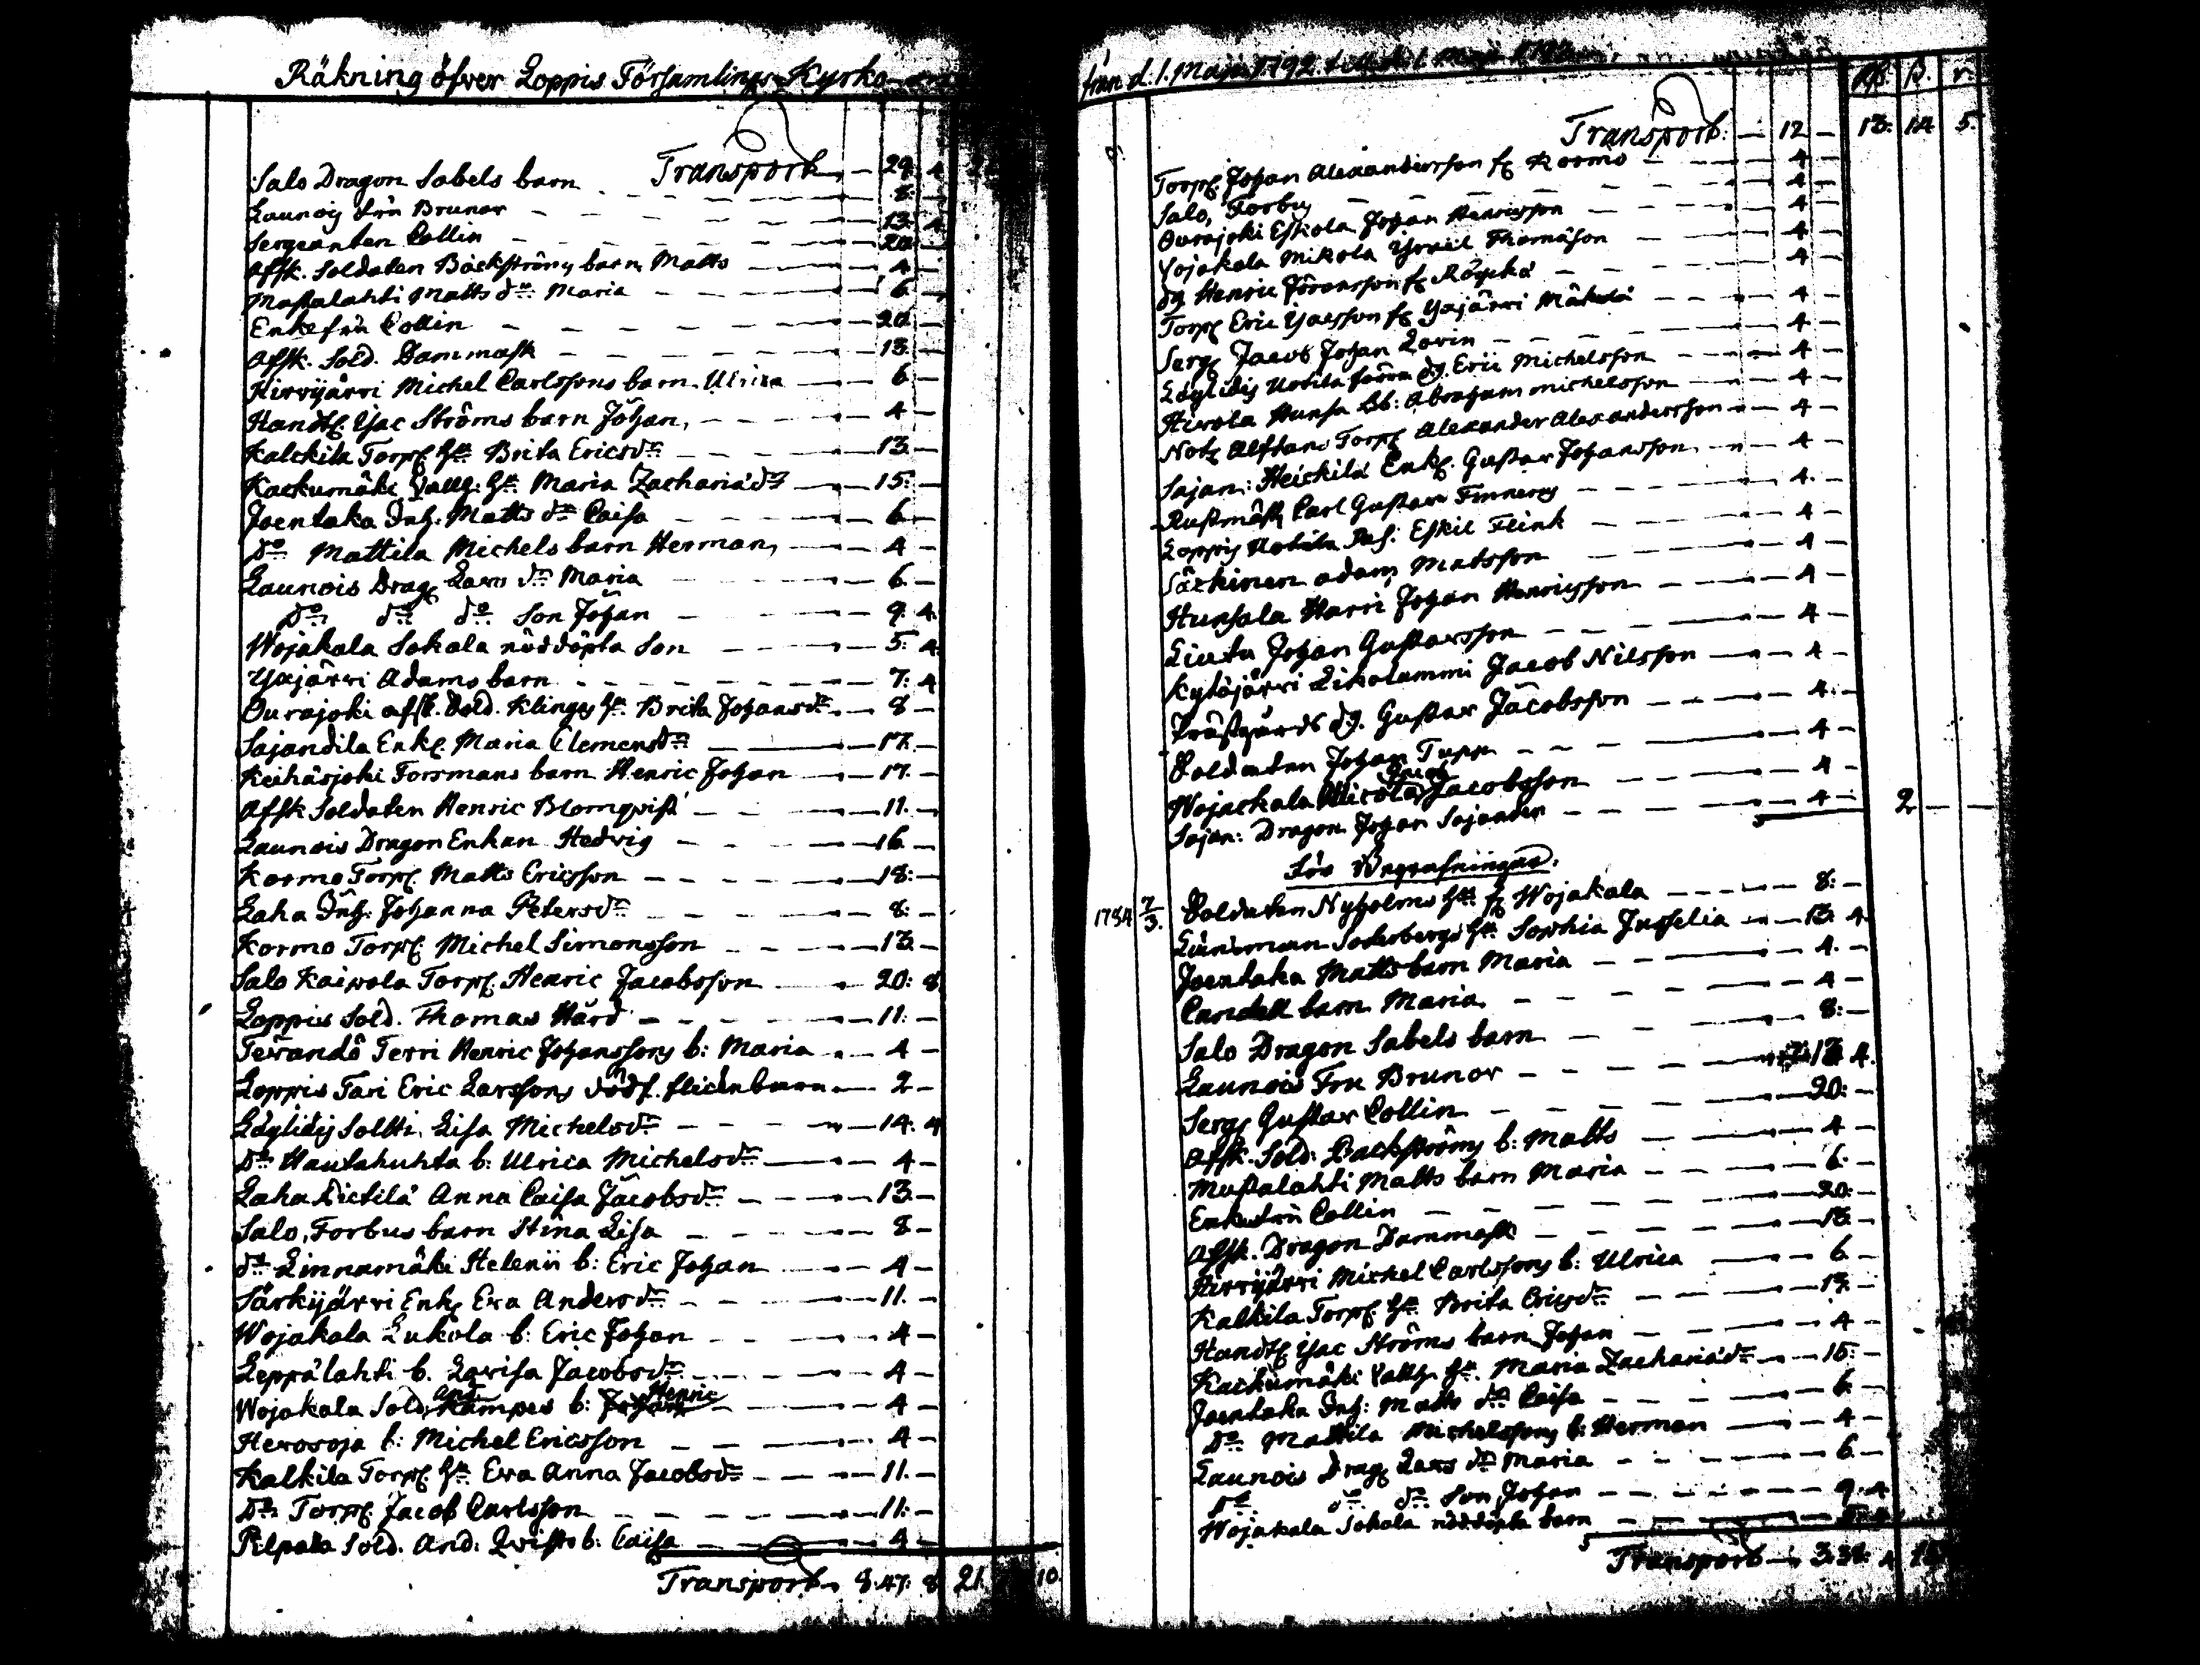 Räkning öfver Loppis Församlings Kyrko
Transport — 29. 4
Salo Dragon Sabels barn — 8. —
Launois fru Brunor — 13. 4
Sergeanten Collin — 20 —
Afsk. Soldaten Bäckströms barn Matts — 4 —
Mustalahti Matts do Maria — 6 —
Enkefru Collin — 20 —
Afsk. Sold. Dammask — 13. —
Hirvijärvi Michel Carlssons barn Ulrica — 6. —
Handtl. Isac Ströms barn Johan — 4 —
Kalckila Torp. hu Brita Ericsdr — 13. —
Kackumäki Vallg. hu Maria Zachariædr — 15. —
Joentaka Inh. Matts dr Caisa — 6. —
do Mattila Michels barn Herman — 4 —
Launois Drag. Lars dr Maria — 6. —
do do do Son Johan — 9. 4
Wojakala Sokala nöddöpta Son — 5. 4
Yxjärvi Adams barn — 7. 4
Ourajoki afsk. Sold. Klings hu. Brita Johansdr — 8 —
Sajandila Enk. Maria Clemensdr — 17. —
Keihäsjoki Forsmans barn Henric Johan — 17. —
Afsk Soldaten Henric Blomqvist — 11. —
Launois Dragon Enkan Hedvig — 16. —
Kormo Torp. Matts Ericsson — 18. —
Laha Inh. Johanna Petersdr — 8. —
Kormo Torp. Michel Simonsson — 13. —
Salo Kaivola Torp. Henric Jacobsson — 20: 8
Loppis Sold. Thomas Hård — 11. —
Terändö Terri Henric Johanssons b: Maria — 4 —
Loppis Tari Eric Larssons dödf. flickebarn — 2 —
Läyliäis Soltti Lisa Michelsdr — 14. 4
do Hautahuhta b: Ulrica Michelsdr — 4 —
Laha Lietilä Anna Caisa Jacobsdr — 13. —
Salo, Forbus barn Stina Lisa — 8 —
do Linnamäki Helenii b: Eric Johan — 4 —
Särkijärvi Enk. Eva Andersdr — 11. —
Wojakala Lukola b: Eric Johan — 4 —
Leppälahti b. Lovisa Jacobsdr — 4 —
Wojakala Sold. And. Kämpes b: Henric — 4 —
Herosoja b: Michel Ericsson — 4 —
Kalkila Torp. hu Eva Anna Jacobsdr — 11. —
do Torp. Jacob Carlsson — 11. —
Pilpala Sold. And. Qvists b: Caisa — 4 —
Transport 8.47. 8 21. 10.
från d. 1. Maji 1792 till d. 1. Maji
Transport: — 12 — 13. 14. 5.
Torp. Johan Alexandersson fr. Kormo — 4 —
Salo, Forbus — 4 —
Ourajoki Eskola Johan Henricsson — 4 —
Vojakala Mikola Israel Thomasson — 4 —
dg Henric Göransson fr. Räyskä — 4 —
Torp. Eric Isacsson fr. Yxjärvi Mäkelä — 4 —
Serg. Jacob Johan Lorin — 4 —
Läyliäis Uotila förra dg. Eric Michelsson — 4 —
Hirvola Hunsa Bb: Abraham Michelsson — 4 —
Not. Alftans Torp. Alexander Alexandersson — 4 —
Sajan: Heickilä Enk. Gustav Johansson — 4 —
Rustmäst. Carl Gustav Finnerus — 4. —
Loppis Uotila Eskil Flink — 4 —
Särkinen Adam Matsson — 4 —
Hunsala Harri Johan Henricsson — 4 —
Liuta Johan Gustavsson — 4 —
Kytöjärvi Liikolammi Jacob Nilsson — 4 —
Prästgårds dg. Gustav Jacobsson — 4. —
Soldaten Johan Tupp — 4 —
Wojackala Nicola Jacob Jacobsson — 4 —
Sajan: Dragon Johan Sajander — 4 — 2 —
För Begrafningar.
1784 7/3. Soldaten Nyholms hu fr. Wojakala — 8: —
Länsman Söderbergs hu Sophia Jusselia — 13. 4
Joentaka Matts barn Maria — 4. —
Candell barn Maria — 4 —
Salo Dragon Sabels barn — 8: —
Launois Fru Brunor — 13. 4.
Serg. Gustav Collin — 20: —
Afsk. Sold. Backströms b: Matts — 4 —
Mustalahti Matts barn Maria — 6. —
Enkefru Collin — 20: —
Afsk. Dragon Dammask — 13. —
Hirvijärvi Michel Carlssons b: Ulrica — 6. —
Kalkila Torp. hu Brita Ericsdr — 13. —
Handtl. Isac Ströms barn Johan — 4 —
Kackumäki Vallg. hu. Maria Zachariædr — 15. —
Joentaka Inh: Matts dr Caisa — 6. —
do Mattila Michelssons b: Herman — 4 —
Launois Drag. Lars dr Maria — 6. —
do do do Son Johan — 9. 4
Wojakala Sokala nöddöpta barn — 5. 4
Transport — 3.38. 4